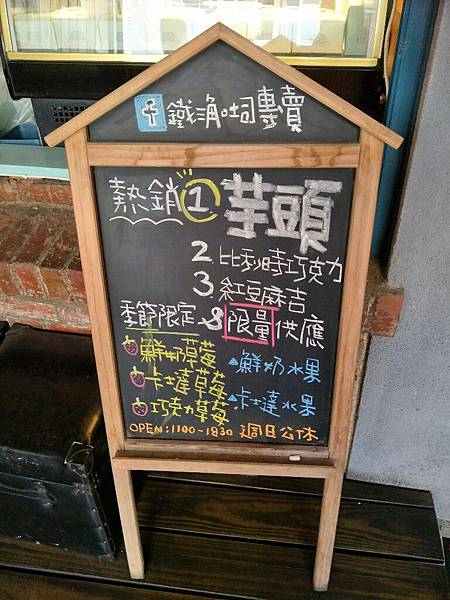 f 鐵角吐司專賣
熱銷 1. 芋頭
2. 比利時巧克力
3. 紅豆麻吉
季節限定 & 限量供應
鮮奶草莓
▲鮮奶水果
卡士達草莓
▲卡士達水果
巧克力草莓
OPEN:1100-1830 週日公休